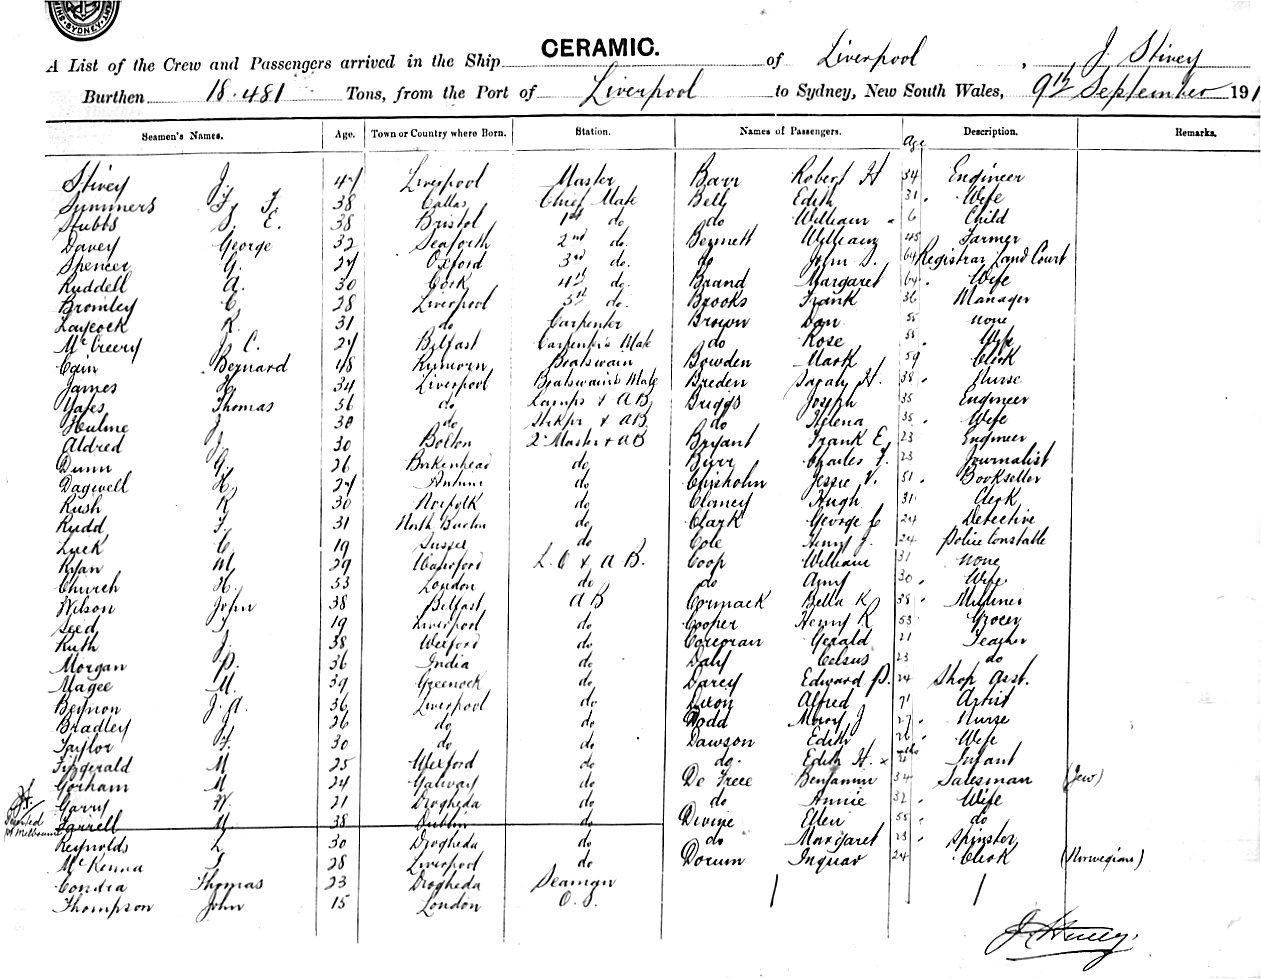 SYDNEY
CERAMIC.
A List of the Crew and Passengers arrived in the Ship of Liverpool, J. Stivey
Burthen 18.481 Tons, from the Port of Liverpool to Sydney, New South Wales, 9th September 191
Seamen's Names. Age. Town or Country where Born. Station. Names of Passengers. Age Description. Remarks.
Stivey J. 47 Liverpool Master Barr Robert H 34 Engineer
Summers F. F. 38 Callas Chief Mate Bell Edith 31 Wife
Stubbs S. E. 38 Bristol 1st do do William 6 Child
Davey George 32 Seaforth 2nd do. Bennett William 45 Farmer
Spencer G. 27 Oxford 3rd do. do John S. 64 Registrar Land Court
Ruddell A. 30 Cork 4th do. Braand Margaret 64 Wife
Bromley C. 28 Liverpool 5th do. Brooks Frank 36 Manager
Laycock R. 31 do Carpenter Brown Dan 55 none
McCreery J. C. 27 Belfast Carpenter's Mate do Rose 55 Wife
Cain Bernard 48 Runcorn Boatswain Bowden Mark 59 Clerk
James H. 34 Liverpool Boatswain's Mate Breden Sarah H. 38 Nurse
Yates Thomas 56 do Lamps & AB Briggs Joseph 35 Engineer
Hulme J 30 do Strkpr & AB do Helena 35 Wife
Aldred J. 30 Bolton 2 Master & AB Bryant Frank E. 23 Engineer
Dunn G. 26 Birkenhead do Burr Charles F. 23 Journalist
Dagwell H. 27 Antrim do Chisholm Jessie V. 51 Bookseller
Rush R 30 Norfolk do Clancy Hugh 31 Clerk
Rudd F. 31 North Burton do Clark George C 24 Detective
Luck C 19 Sussex do Cole Henry J. 24 Police Constable
Ryan M. 29 Waterford L.O & AB. Coop William 31 none
Church H. 53 London do do Amy 30 Wife
Wilson John 38 Belfast AB Cormack Bella K 38 Milliner
Seed 19 Liverpool do Cooper Henry R 53 Grocer
Ruth J. 38 Wexford do Corcoran Gerald 21 Teacher
Morgan P. 36 India do Daly Celsus 23 do
Magee M. 39 Greenock do Darcy Edward P. 24 Shop Asst.
Beynon J.A. 36 Liverpool do Dixon Alfred 71 Artist
Bradley J. 26 do do Dodd Mary J 27 Nurse
Taylor F. 30 do do Dawson Edith 26 Wife
Fitzgerald M 25 Wexford do do. Edith H. Infant
Gorham M 24 Galway do De Frece Benjamin 34 Salesman (Jew)
Garry W. 21 Drogheda do do Annie 32 Wife
Deserted at Melbourne Farrell M 38 Dublin do Divine Ellen 55 do
Reynolds L 30 Drogheda do do Margaret 23 Spinster
McKenna 28 Liverpool do Dorum Ingvar 24 Clerk (Norwegian)
Condra Thomas 23 Drogheda Seaman
Thompson John 15 London O.S.
J. Stivey.